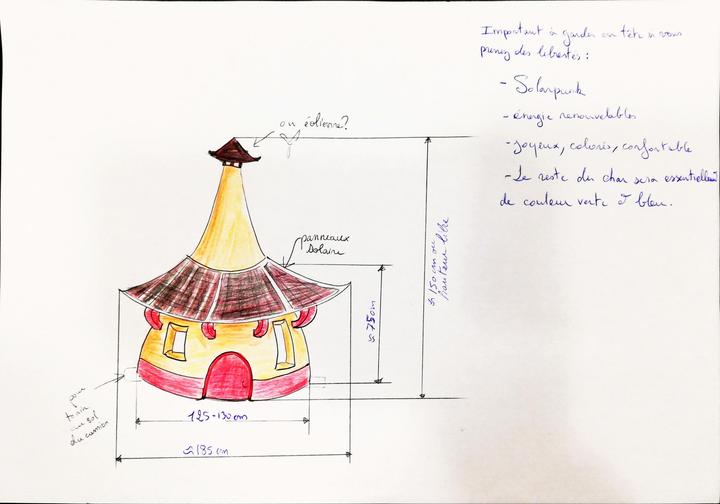 Important à garder en tête si vous
prenez des libertés :
- Solarpunk
- énergie renouvelables
- joyeux, colorés, confortable
- Le reste du char sera essentiellement
de couleur verte & bleu.
ou éolienne?
panneaux
solaire
≈ 150 cm ou
hauteur libre
≈ 75cm
pour
tenir
au sol
du camion
125-130 cm
≈ 185 cm